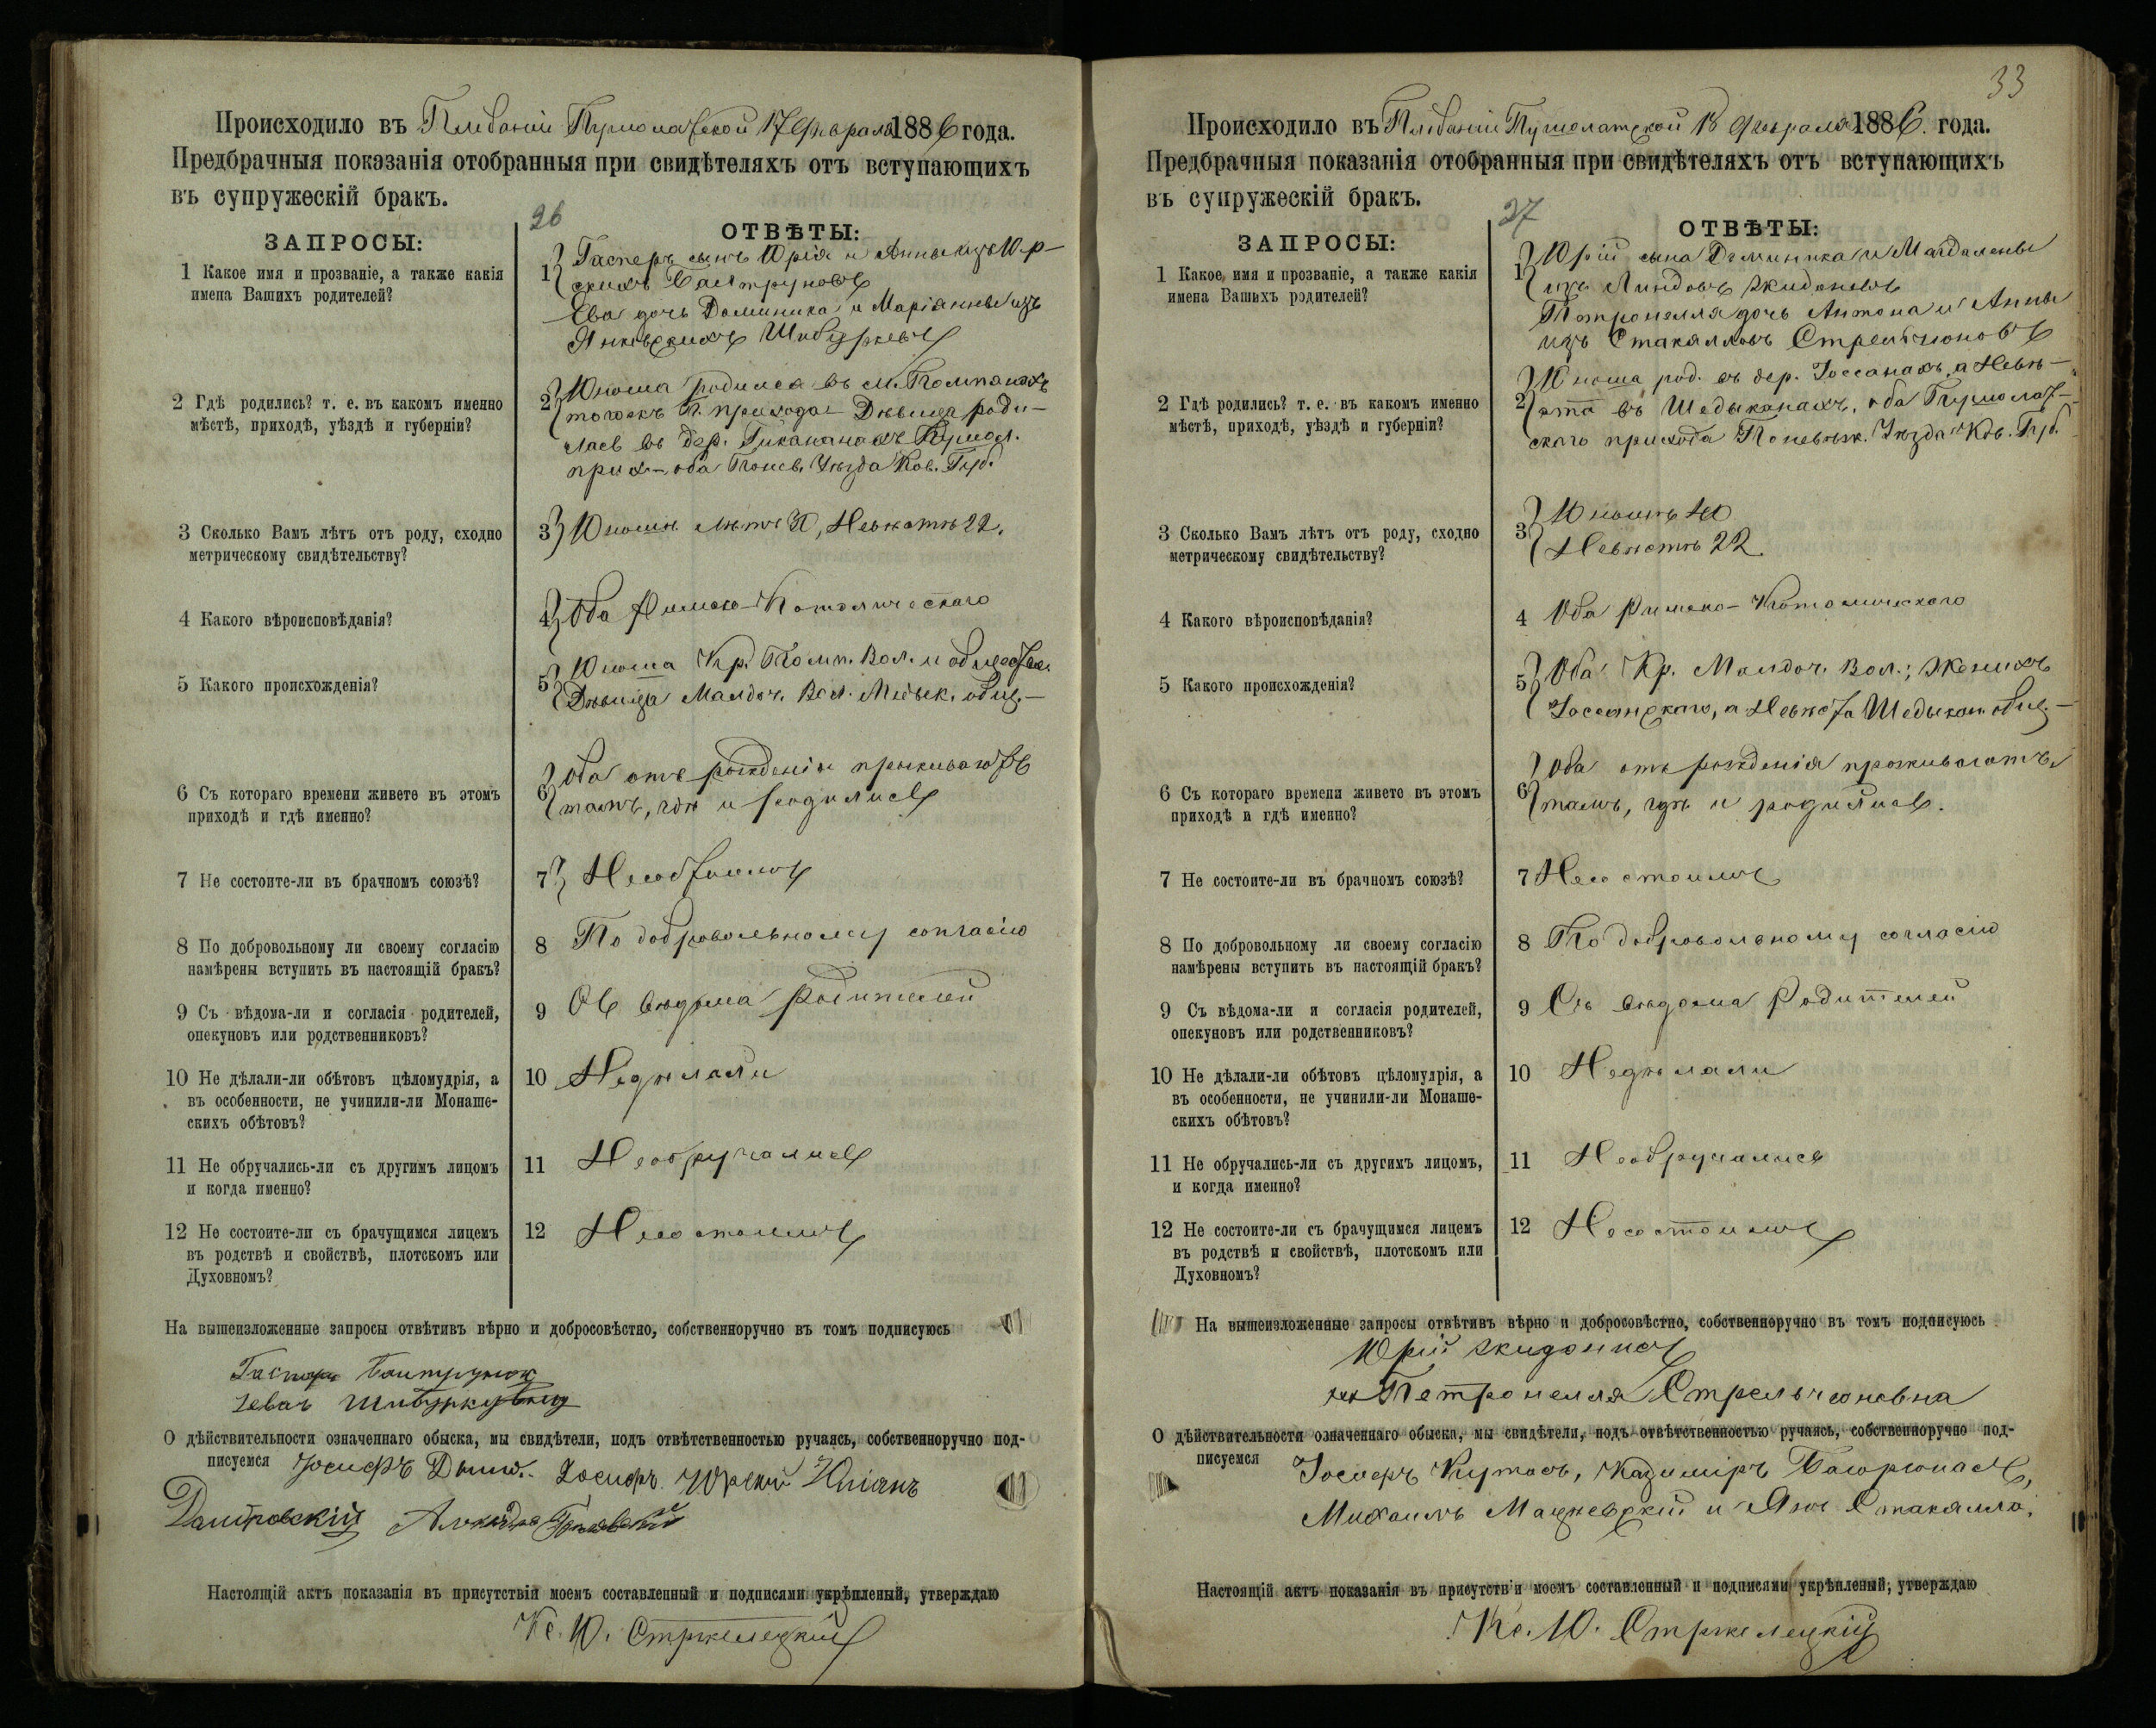 Происходило въ Плебаніи 17 Февраля 1886 года.
Предбрачныя показанія отобранныя при свидѣтеляхъ отъ вступающихъ
въ супружескій бракъ.
26
ЗАПРОСЫ:
ОТВѢТЫ:
1 Какое имя и прозваніе, а также какія
имена Вашихъ родителей?
1 Гасперъ сынъ Юрія и Анны изъ Юр-
скихъ
Ева дочь Доминика и Маріанны изъ
Янковскихъ
2 Гдѣ родились? т. е. въ какомъ именно
мѣстѣ, приходѣ, уѣздѣ и губерніи?
2 Юноша родился въ м. Помпянахъ
прихода Дѣвица роди-
лась въ дер.
прих- оба Понев. Уѣзда Ков. Губ.
3 Сколько Вамъ лѣтъ отъ роду, сходно
метрическому свидѣтельству?
3 Юноши лѣтъ 30, Невѣстѣ 22.
4 Какого вѣроисповѣданія?
4 Оба Римско-Католическаго
5 Какого происхожденія?
5 Юноша Кр. Помп. Вол. и обществ.
Дѣвица Малдоч. Вол. общ.-
6 Съ котораго времени живете въ этомъ
приходѣ и гдѣ именно?
6 Оба отъ рожденія проживаютъ
тамъ, гдѣ и родились
7 Не состоите-ли въ брачномъ союзѣ?
7 Несостоимъ
8 По добровольному ли своему согласію
намѣрены вступить въ настоящій бракъ?
8 По добровольному согласію
9 Съ вѣдома-ли и согласія родителей,
опекуновъ или родственниковъ?
9 Съ вѣдома Родителей
10 Не дѣлали-ли обѣтовъ цѣломудрія, а
въ особенности, не учинили-ли Монаше-
скихъ обѣтовъ?
10 Недѣлали
11 Не обручались-ли съ другимъ лицомъ
и когда именно?
11 Необручались
12 Не состоите-ли съ брачущимся лицемъ
въ родствѣ и свойствѣ, плотскомъ или
Духовномъ?
12 Несостоимъ
На вышеизложенные запросы отвѣтивъ вѣрно и добросовѣстно, собственноручно въ томъ подписуюсь
О дѣйствительности означеннаго обыска, мы свидѣтели, подъ отвѣтственностью ручаясь, собственноручно под-
писуемся Іосифъ Іосифъ Юрскій Юліанъ
Настоящій актъ показанія въ присутствіи моемъ составленный и подписями укрѣпленый, утверждаю
Кс. Ю. Стржелецкій
33
Происходило въ Плебаніи 18 Февраля 1886. года.
Предбрачныя показанія отобранныя при свидѣтеляхъ отъ вступающихъ
въ супружескій бракъ.
27
ЗАПРОСЫ:
ОТВѢТЫ:
1 Какое имя и прозваніе, а также какія
имена Вашихъ родителей?
1 Юрій сына Доминика и Магдалены
изъ Линдовъ Жидонисъ
Петронелля дочь Антона и Анны
изъ Стакялловъ Стрельчюновъ
2 Гдѣ родились? т. е. въ какомъ именно
мѣстѣ, приходѣ, уѣздѣ и губерніи?
2 Юноша род. въ дер. Іоссанахъ, а Невѣ-
ста въ Шедыканахъ, оба
скаго прихода Поневѣж. Уѣзда Ков. Губ.
3 Сколько Вамъ лѣтъ отъ роду, сходно
метрическому свидѣтельству?
3 Юношѣ 40
Невѣстѣ 22.
4 Какого вѣроисповѣданія?
4 Оба Римско-Католическаго
5 Какого происхожденія?
5 Оба Кр. Малдоч. Вол.; Женихъ
Іоссанскаго, а Невѣста Шедыкан. общ.-
6 Съ котораго времени живете въ этомъ
приходѣ и гдѣ именно?
6 Оба отъ рожденія проживаютъ
тамъ, гдѣ и родились.
7 Не состоите-ли въ брачномъ союзѣ?
7 Несостоимъ
8 По добровольному ли своему согласію
намѣрены вступить въ настоящій бракъ?
8 По добровольному согласію
9 Съ вѣдома-ли и согласія родителей,
опекуновъ или родственниковъ?
9 Съ вѣдома Родителей
10 Не дѣлали-ли обѣтовъ цѣломудрія, а
въ особенности, не учинили-ли Монаше-
скихъ обѣтовъ?
10 Недѣлали
11 Не обручались-ли съ другимъ лицомъ,
и когда именно?
11 Необручались
12 Не состоите-ли съ брачущимся лицемъ
въ родствѣ и свойствѣ, плотскомъ или
Духовномъ?
12 Несостоимъ
На вышеизложенные запросы отвѣтивъ вѣрно и добросовѣстно, собственноручно въ томъ подписуюсь
Юрій Жидонисъ
Петронелля Стрельчоновна
О дѣйствительности означеннаго обыска, мы свидѣтели, подъ отвѣтственностью ручаясь, собственноручно под-
писуемся Іосифъ Казиміръ
Михаилъ Мацкевскій и Янъ Стакялло.
Настоящій актъ показанія въ присутствіи моемъ составленный и подписями укрѣпленый, утверждаю
Кс. Ю. Стржелецкій